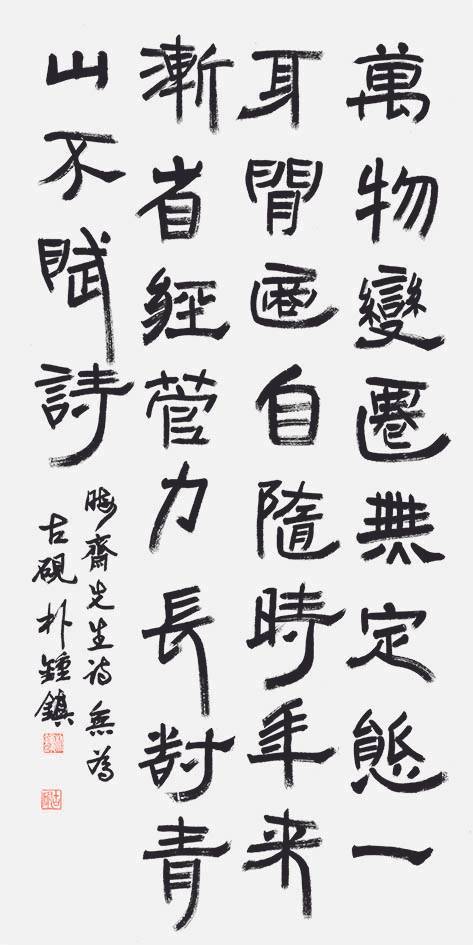 萬物變遷無定態一
身閒適自隨時年來
漸省經營力長對青
山不賦詩
晦齋先生詩無為
古硯朴鍾鎮